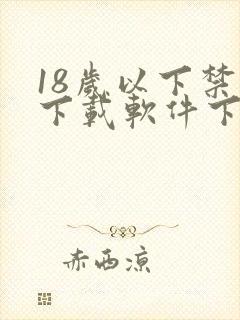 18歲以下禁
下載軟件下
赤西涼